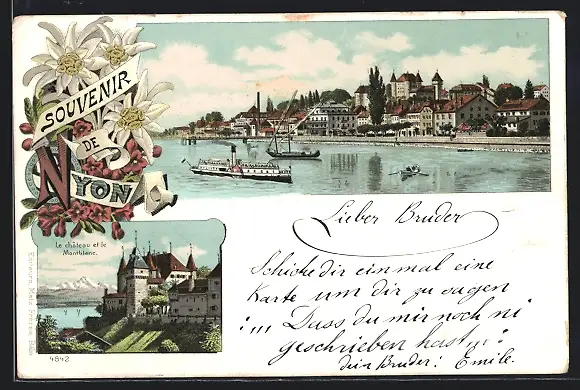 SOUVENIR
DE
NYON
Le château et le
Montblanc.
4842
Lieber Bruder
Schicke dir einmal eine
Karte um dir zu sagen
:,,, Dass du mir noch ni
geschrieben hast,,,:
dein Bruder: Emile.